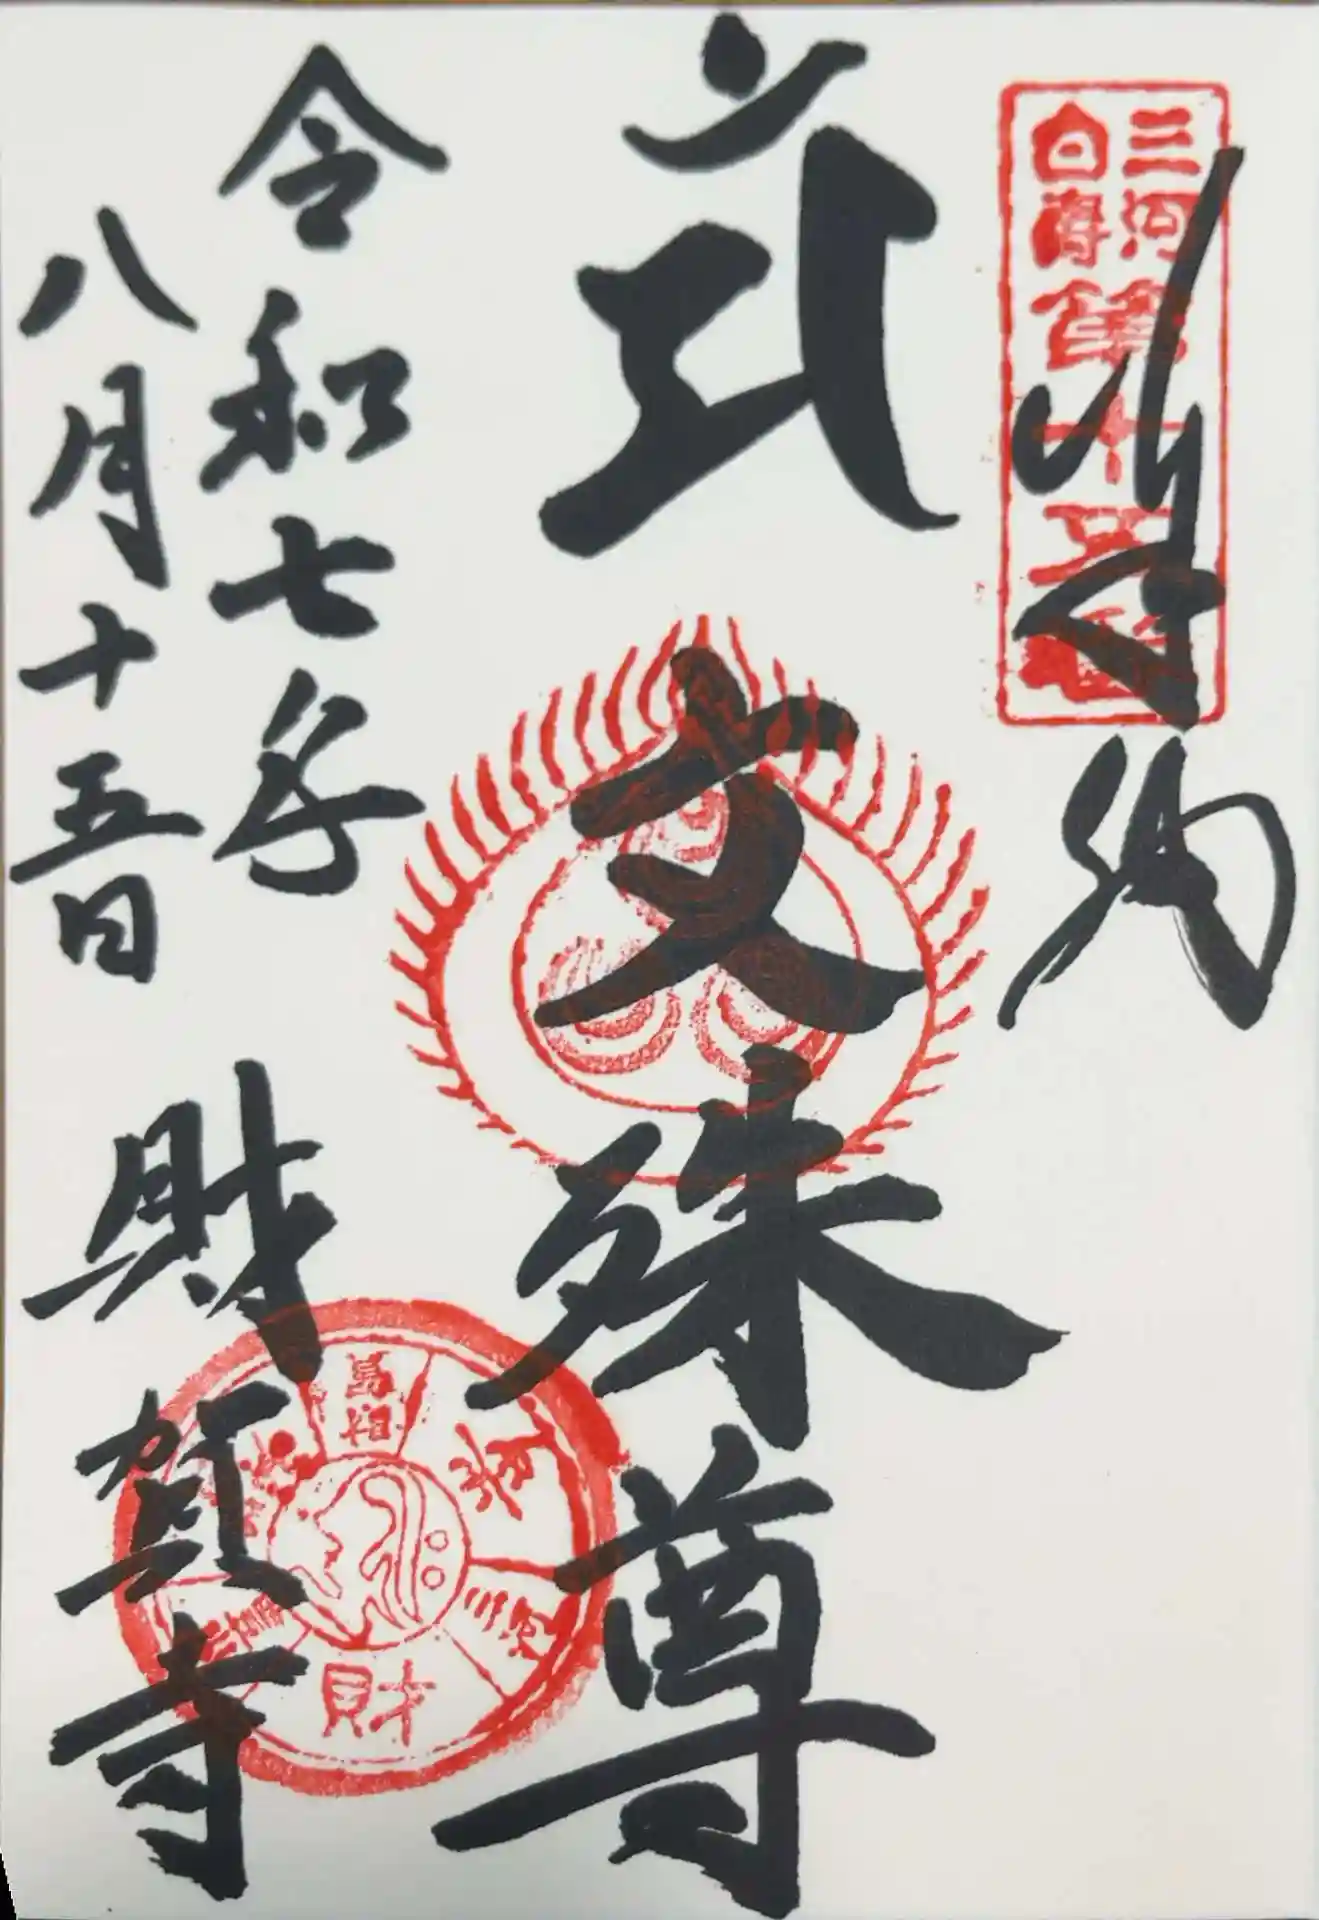 奉納
三河
第十五番
文殊尊
令和七年
八月十五日
財賀寺
三河
財